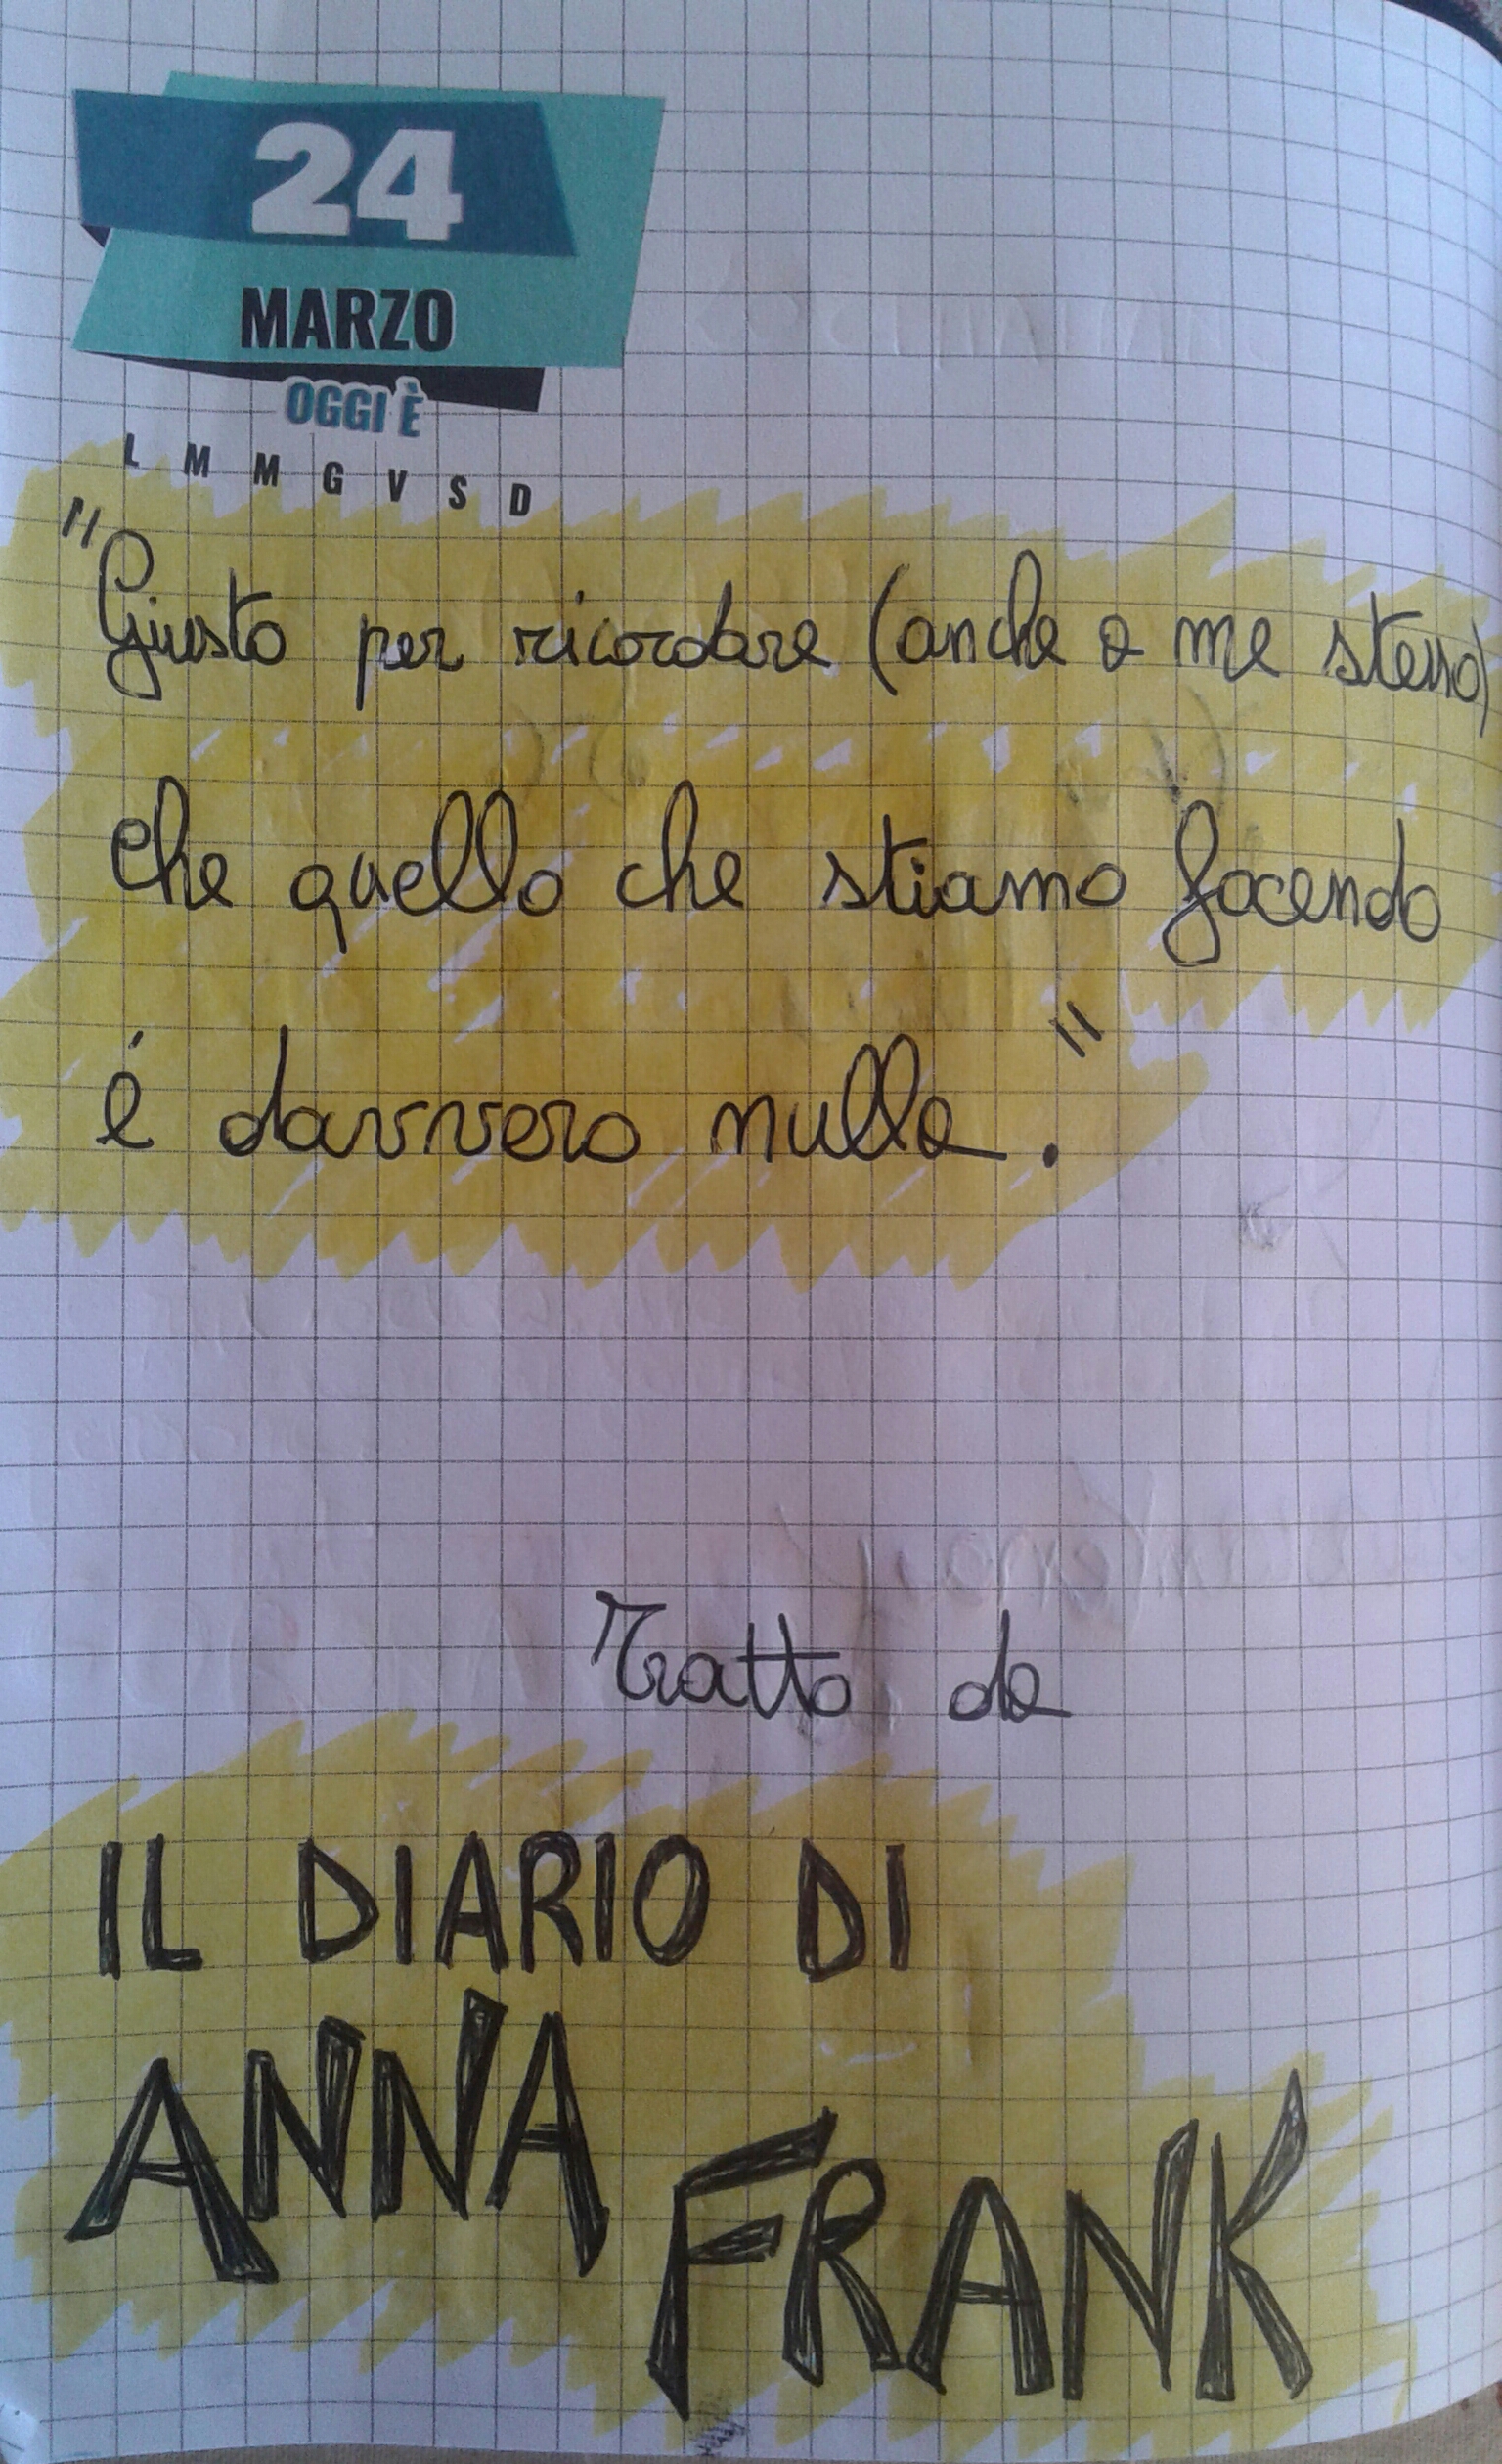 24
MARZO
OGGI È
L M M G V S D
"Giusto per ricordare (anche a me stesso)
che quello che stiamo facendo
é davvero nulla."
Tratto da
IL DIARIO DI
ANNA
FRANK